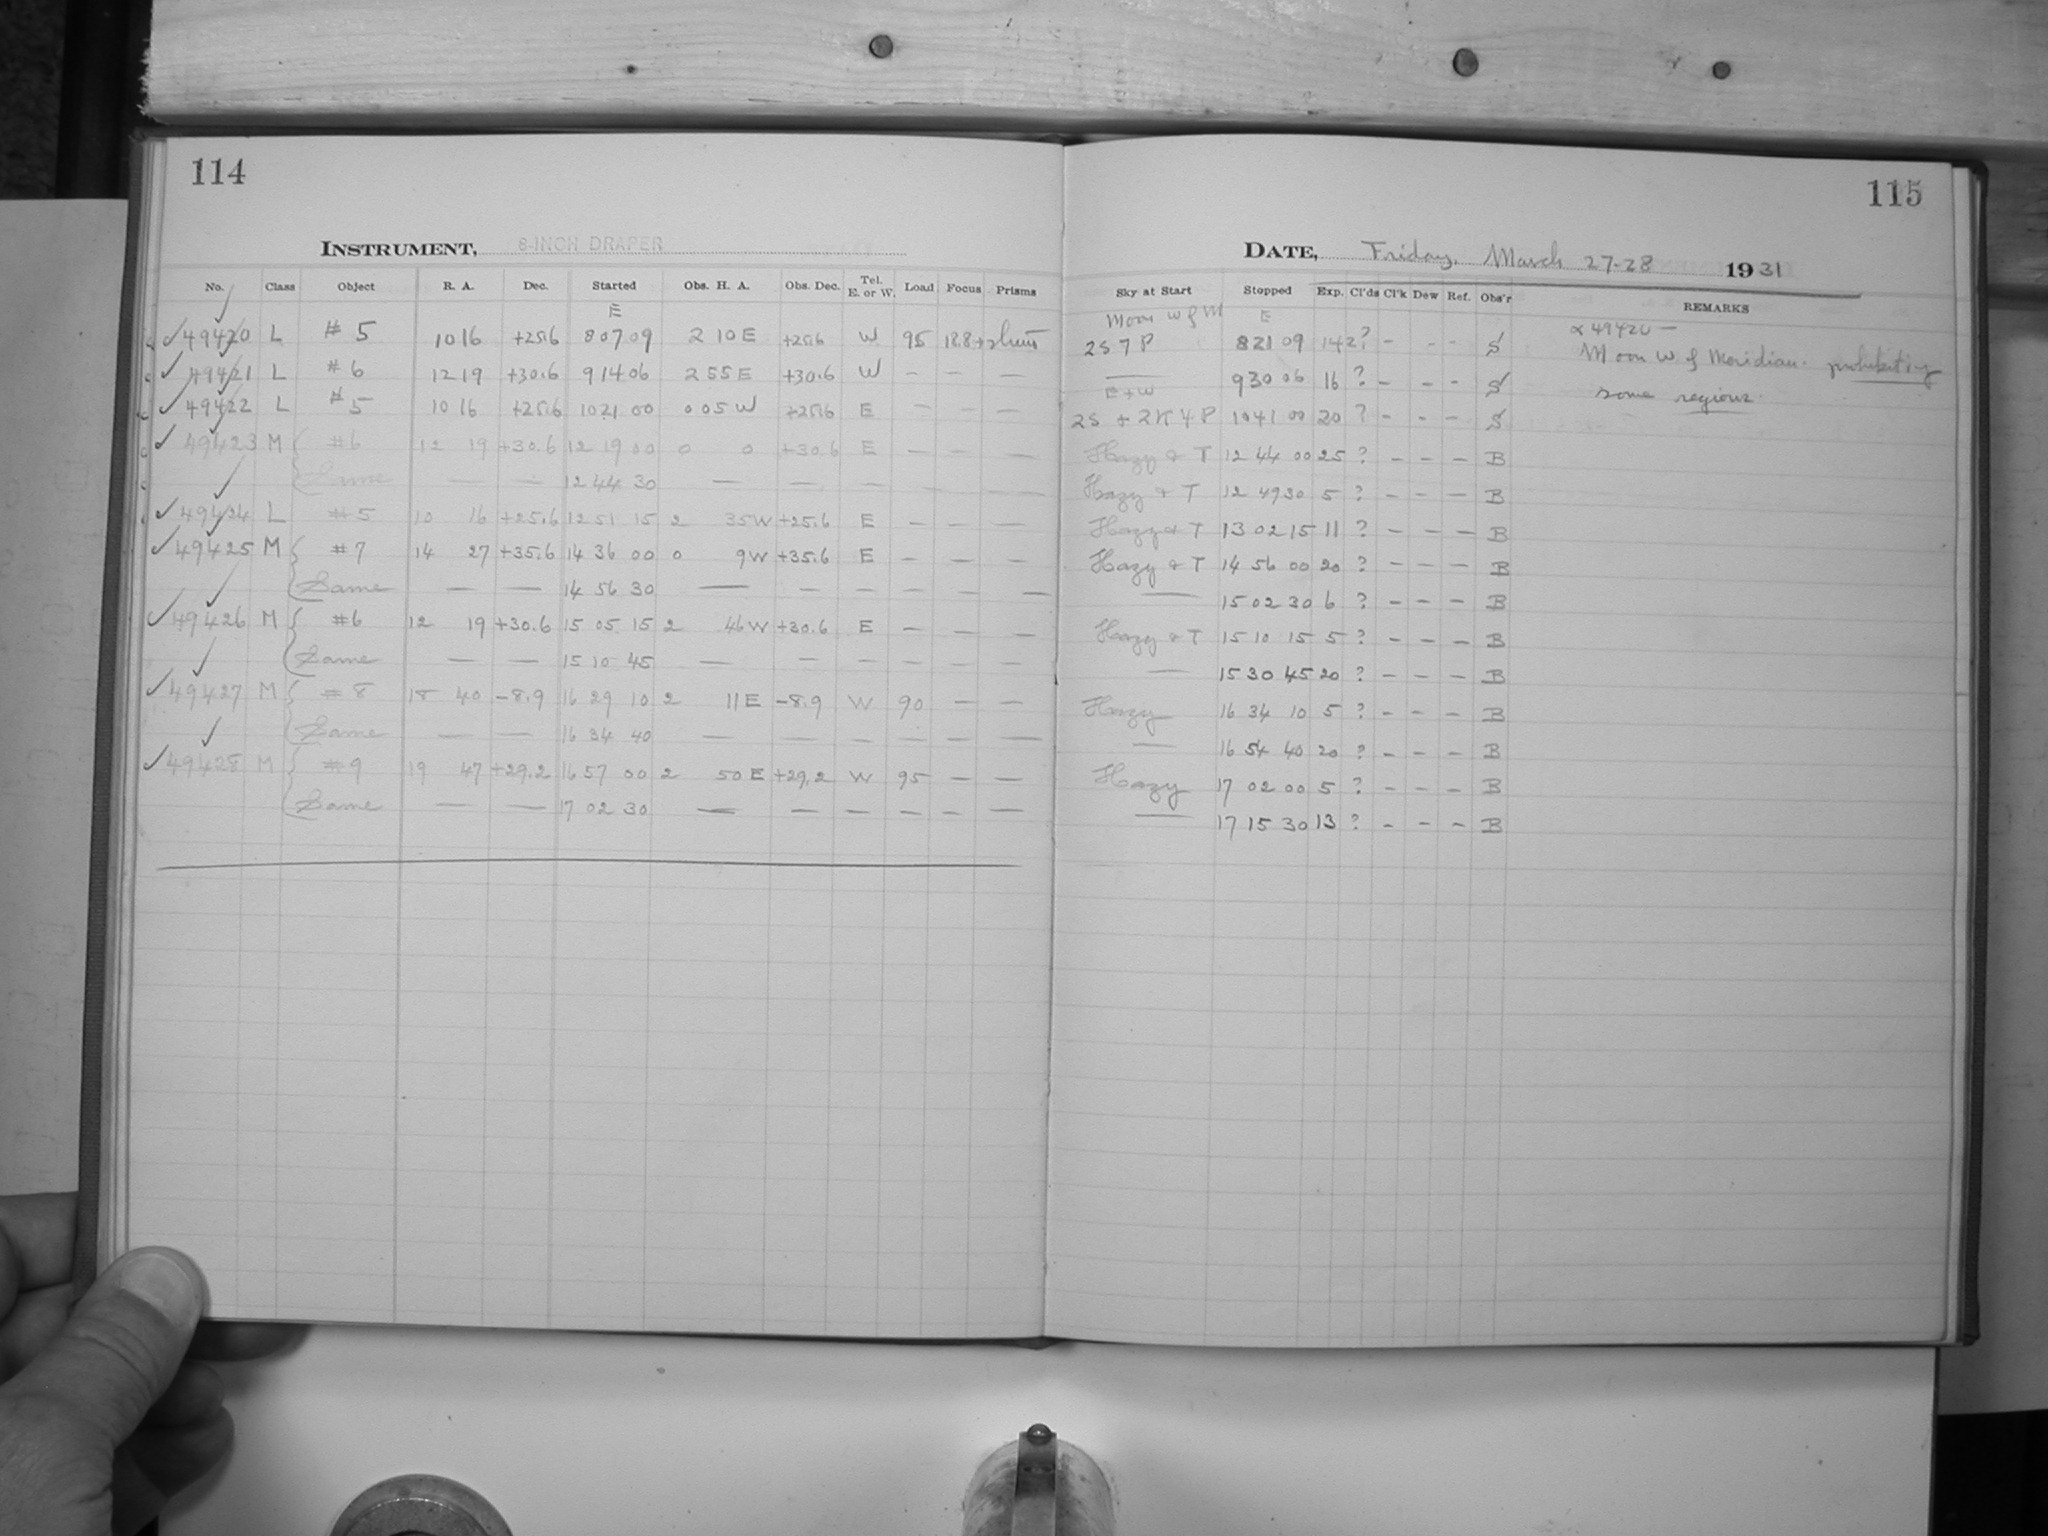 114
INSTRUMENT, 8-INCH DRAPER
No. Class Object R. A. Dec. Started Obs. H. A. Obs. Dec. Tel. E. or W. Load Focus Prisms
E
49420 L # 5 10 16 +25.6 8 07 09 2 10 E +25.6 W 95
49421 L # 6 12 19 +30.6 9 14 06 2 55 E +30.6 W — — —
49422 L # 5 10 16 +25.6 10 21 00 0 05 W +25.6 E — — —
49423 M #6 12 19 +30.6 12 19 00 0 0 +30.6 E — — —
Same — — 12 44 30 — — — — — —
49424 L #5 10 16 +25.6 12 51 15 2 35 W +25.6 E — — —
49425 M #7 14 27 +35.6 14 36 00 0 9 W +35.6 E — — —
Same — — 14 56 30 — — — — — —
49426 M #6 12 19 +30.6 15 05 15 2 46 W +30.6 E — — —
Same — — 15 10 45 — — — — — —
49427 M #8 18 40 -8.9 16 29 10 2 11 E -8.9 W 90 — —
Same — — 16 34 40 — — — — — —
49428 M #9 19 47 +29.2 16 57 00 2 50 E +29.2 W 95 — —
Same — — 17 02 30 — — — — — —
115
DATE, Friday, March 27-28 1931
Sky at Start Stopped Exp. Cl'ds Cl'k Dew Ref. Obs'r REMARKS
Moon W of M E
2S 7 P 8 21 09 14 ? - - - S
— 9 30 06 16 ? - - - S
E + W
2S + 2K 4 P 10 41 00 20 ? - - - S
Hazy & T 12 44 00 25 ? - - - B
Hazy & T 12 49 30 5 ? - - - B
Hazy & T 13 02 15 11 ? - - - B
Hazy & T 14 56 00 20 ? - - - B
— 15 02 30 6 ? - - - B
Hazy & T 15 10 15 5 ? - - - B
— 15 30 45 20 ? - - - B
Hazy 16 34 10 5 ? - - - B
— 16 54 40 20 ? - - - B
Hazy 17 02 00 5 ? - - - B
— 17 15 30 13 ? - - - B
49420 —
Moon W of Meridian. prohibiting
some regions.